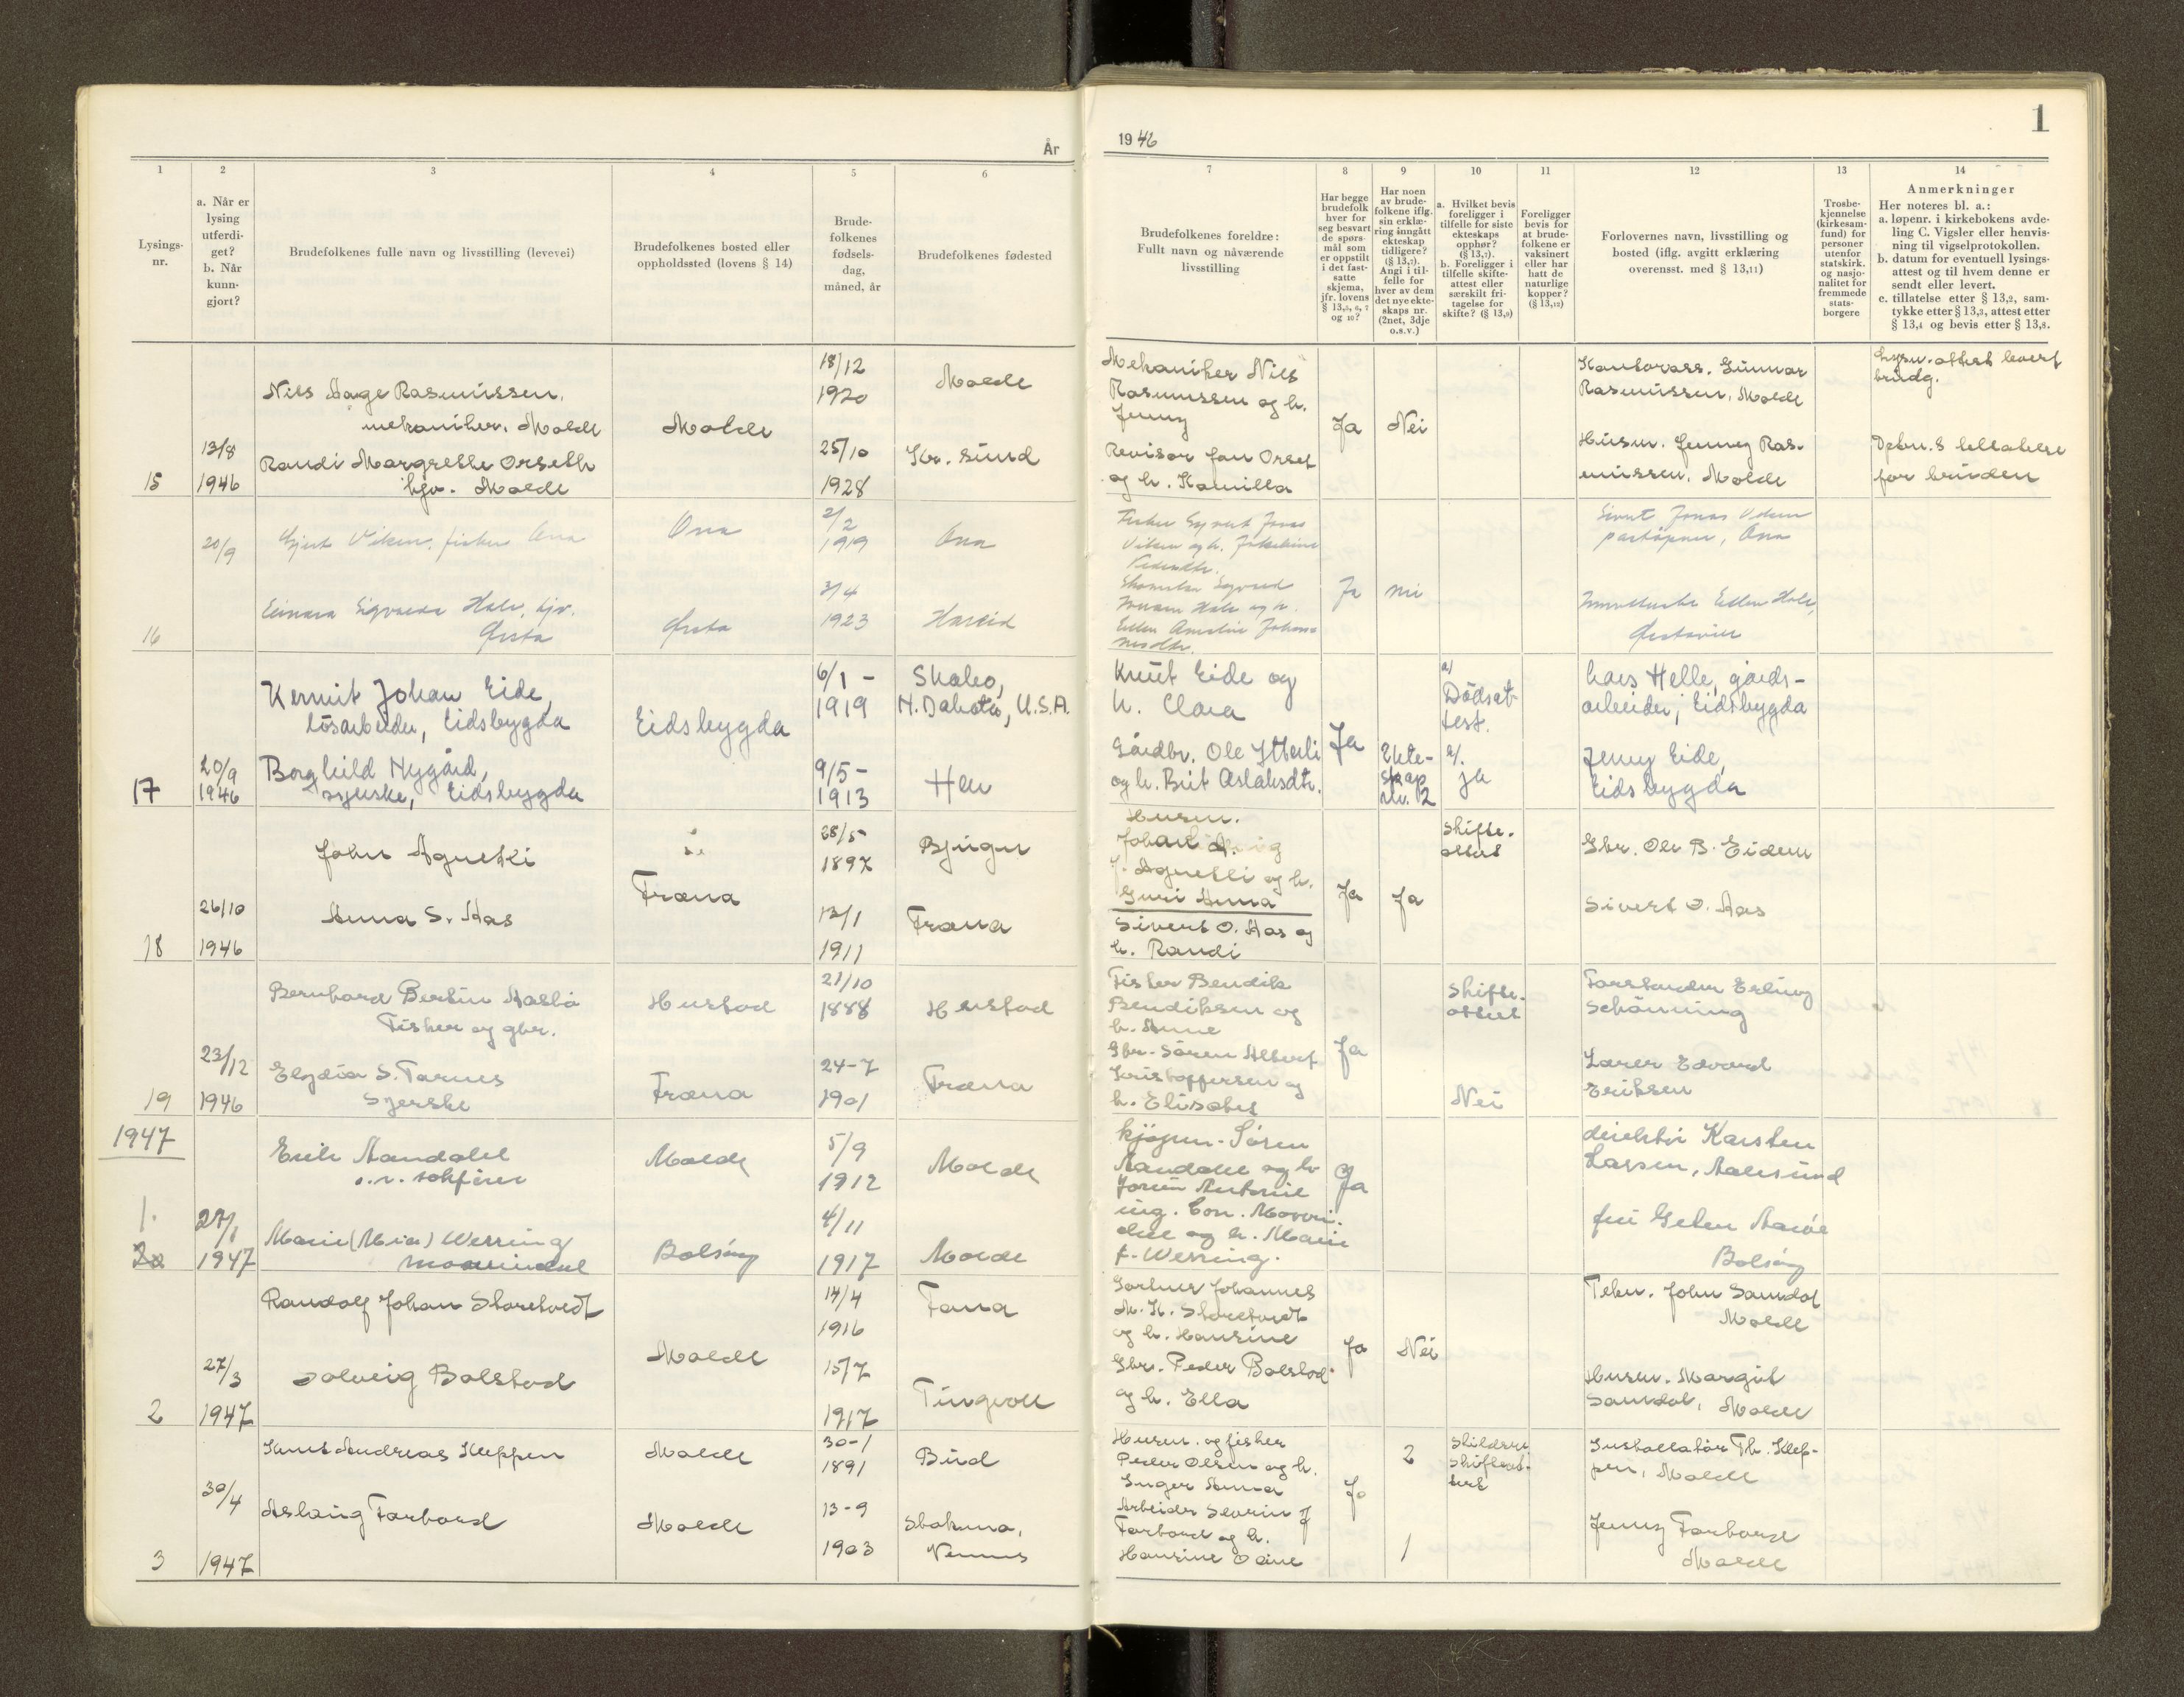 1
År
1946
1
2
3
4
5
6
7
8
9
10
11
12
13
14
Lysings-
nr.
a. Når er
lysing
utferdi-
get?
b. Når
kunn-
gjort?
Brudefolkenes fulle navn og livsstilling (levevei)
Brudefolkenes bosted eller
oppholdssted (lovens § 14)
Brude-
folkenes
fødsels-
dag,
måned, år
Brudefolkenes fødested
Brudefolkenes foreldre:
Fullt navn og nåværende
livsstilling
Har begge
brudefolk
hver for
seg besvart
de spørs-
mål som
er oppstilt
i det fast-
satte
skjema,
jfr. lovens
§ 13,5, 6, 7
og 10?
Har noen
av brude-
folkene iflg.
sin erklæ-
ring inngått
ekteskap
tidligere?
(§ 13,7).
Angi i til-
felle for
hver av dem
det nye ekte-
skaps nr.
(2net, 3dje
o.s.v.)
a. Hvilket bevis
foreligger i
tilfelle for siste
ekteskaps
opphør?
(§ 13,7).
b. Foreligger i
tilfelle skifte-
attest eller
særskilt fri-
tagelse for
skifte? (§ 13,9)
Foreligger
bevis for
at brude-
folkene er
vaksinert
eller har
hatt de
naturlige
kopper?
(§ 13,12)
Forlovernes navn, livsstilling og
bosted (iflg. avgitt erklæring
overensst. med § 13,11)
Trosbe-
kjennelse
(kirkesam-
fund) for
personer
utenfor
statskirk.
og nasjo-
nalitet for
fremmede
stats-
borgere
Anmerkninger
Her noteres bl. a.:
a. løpenr. i kirkebokens avde-
ling C. Vigsler eller henvis-
ning til vigselprotokollen.
b. datum for eventuell lysings-
attest og til hvem denne er
sendt eller levert.
c. tillatelse etter § 13,2, sam-
tykke etter § 13,3, attest etter
§ 13,4 og bevis etter § 13,8.
15
13/8
1946
Nils Aage Rasmussen,
mekaniker, Molde
Randi Margrethe Orseth
hjv. Molde
Molde
18/12
1920
25/10
1928
Molde
Kr. sund
Mekaniker Nils
Rasmussen og h.
Jenny
Revisor Jan Orset
og h. Kamilla
Ja
Nei
Kontorass. Gunnar
Rasmussen, Molde
Husm. Jenny Ras-
mussen, Molde
Lysn. attest levert
brudg.
Dpbn.s tillatelse
for bruden
16
20/9
Viken, fisker Ona
Einara Sigvarda Hale, hjv.
Ørsta
Ona
Ørsta
2/2
1919
3/4
1923
Ona
Hareid
Fisker
Viken og h.
Pedersdtr.
Hale og h.
Ellen
Ja
nei
Sivert Jonas Viken
Ona
Ellen Hale,
Ørstavik
17
20/9
1946
Kermit Johan Eide,
løsarbeider, Eidsbygda
Borghild Nygård,
syerske, Eidsbygda
Eidsbygda
6/1 -
1919
9/5 -
1913
N. Dakota, U.S.A.
Hen
Knut Eide og
h. Clara
Gårdbr. Ole Ytterli
og h. Brit Aslaksdtr.
Ja
Ekte-
skap
nr. 2
a/
Dödsat-
test.
ja
Lars Helle, gårds-
arbeider, Eidsbygda
Jenny Eide,
Eidsbygda
18
26/10
1946
John Agnethli
Anna S. Aas
Fræna
28/5
1897
12/1
1911
Bjugn
Fræna
Husm.
Johan
Agnethli og h.
Guri Anna
Sivert O. Aas og
h. Randi
Ja
Ja
Skifte-
attest
Gbr. Ole B. Eidem
Sivert O. Aas
19
23/12
1946
Bernhard Bertin
Fisker og gbr.
Elydia S. Tornes
Syerske
Hustad
Fræna
21/10
1888
24-7
1901
Hustad
Fræna
Fisker Bendik
Bendiksen og
h. Anne
Gbr. Sören Albert
Kristoffersen og
h. Elisabet
Ja
Skifte-
attest
Nei
Forstander Erling
Schönning
Lærer Edvard
Eriksen
1947
1.
27/1
1947
Erik Aandahl
o.r. sakfører
Marie (Mia) Werring
Mowinckel
Molde
Bolsöy
5/9
1912
4/11
1917
Molde
Molde
kjøpm. Sören
Aandahl og h
Antonie
ing. Con. Mowin-
ckel og h. Marie
f. Werring.
Ja
direktör Karsten
Larsen, Aalesund
Bolsöy
2
27/3
1947
Randolf Johan Storetvedt
Solveig Bolstad
Molde
14/4
1916
15/7
1917
Fana
Tingvoll
Gartner Johannes
M. K. Storetvedt
og h. Hansine
Gbr. Peder Bolstad
og h. Ella
Ja
Nei
Tekn. John Sandal
Molde
Husm. Margit
Sandal, Molde
3
30/4
1947
Knut Andreas Kleppen
Aslaug Farbord
Molde
Molde
30-1
1891
13-9
1903
Bud
Husm. og fisker
Peder Olsen og h.
Inger Anna
Arbeider Severin J
Farbord og h.
Hansine
Ja
2
1
Installatör Th. Klep-
pen, Molde
Jenny Farbord
Molde